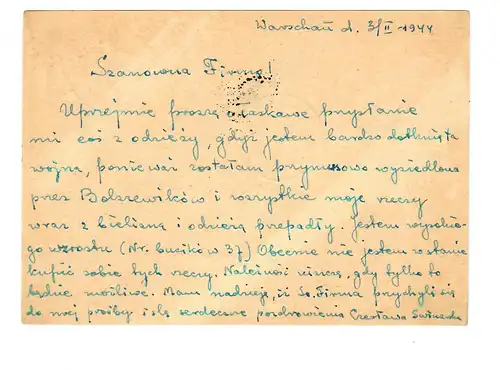 Warschau d. 3/II 1944
Szanowna Firmo!
Uprzejmie proszę o łaskawe przysłanie
mi coś z odzieży, gdyż jestem bardzo dotknięta
wojną, ponieważ zostałam przymusowo wysiedlona
przez Bolszewików i wszystkie moje rzeczy
wraz z bielizną i odzieżą przepadły. Jestem wysokie-
go wzrostu (Nr. bucików 37) Obecnie nie jestem w stanie
kupić sobie tych rzeczy. Należność uiszczę, gdy tylko to
będzie możliwe. Mam nadzieję, iż Sz. Firma przychyli się
do mej prośby i ślę serdeczne pozdrowienia Czesława